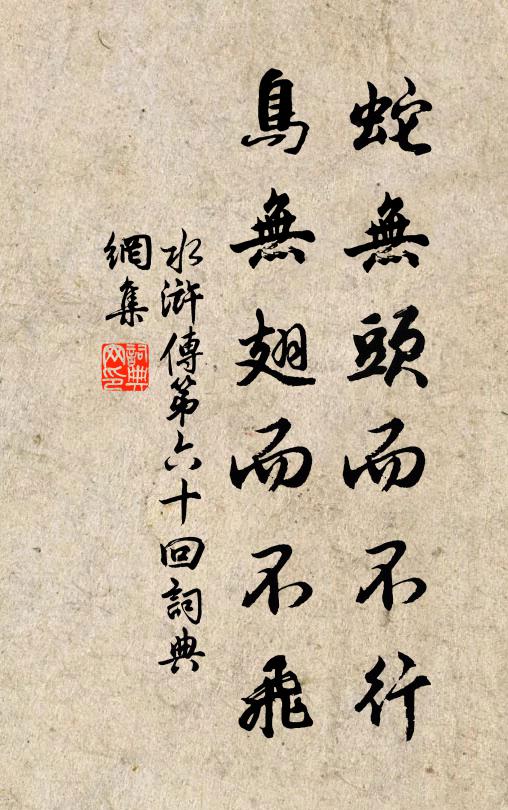 蛇無頭而不行
鳥無翅而不飛
水滸傳第六十回詞典
網集
詞典
网印